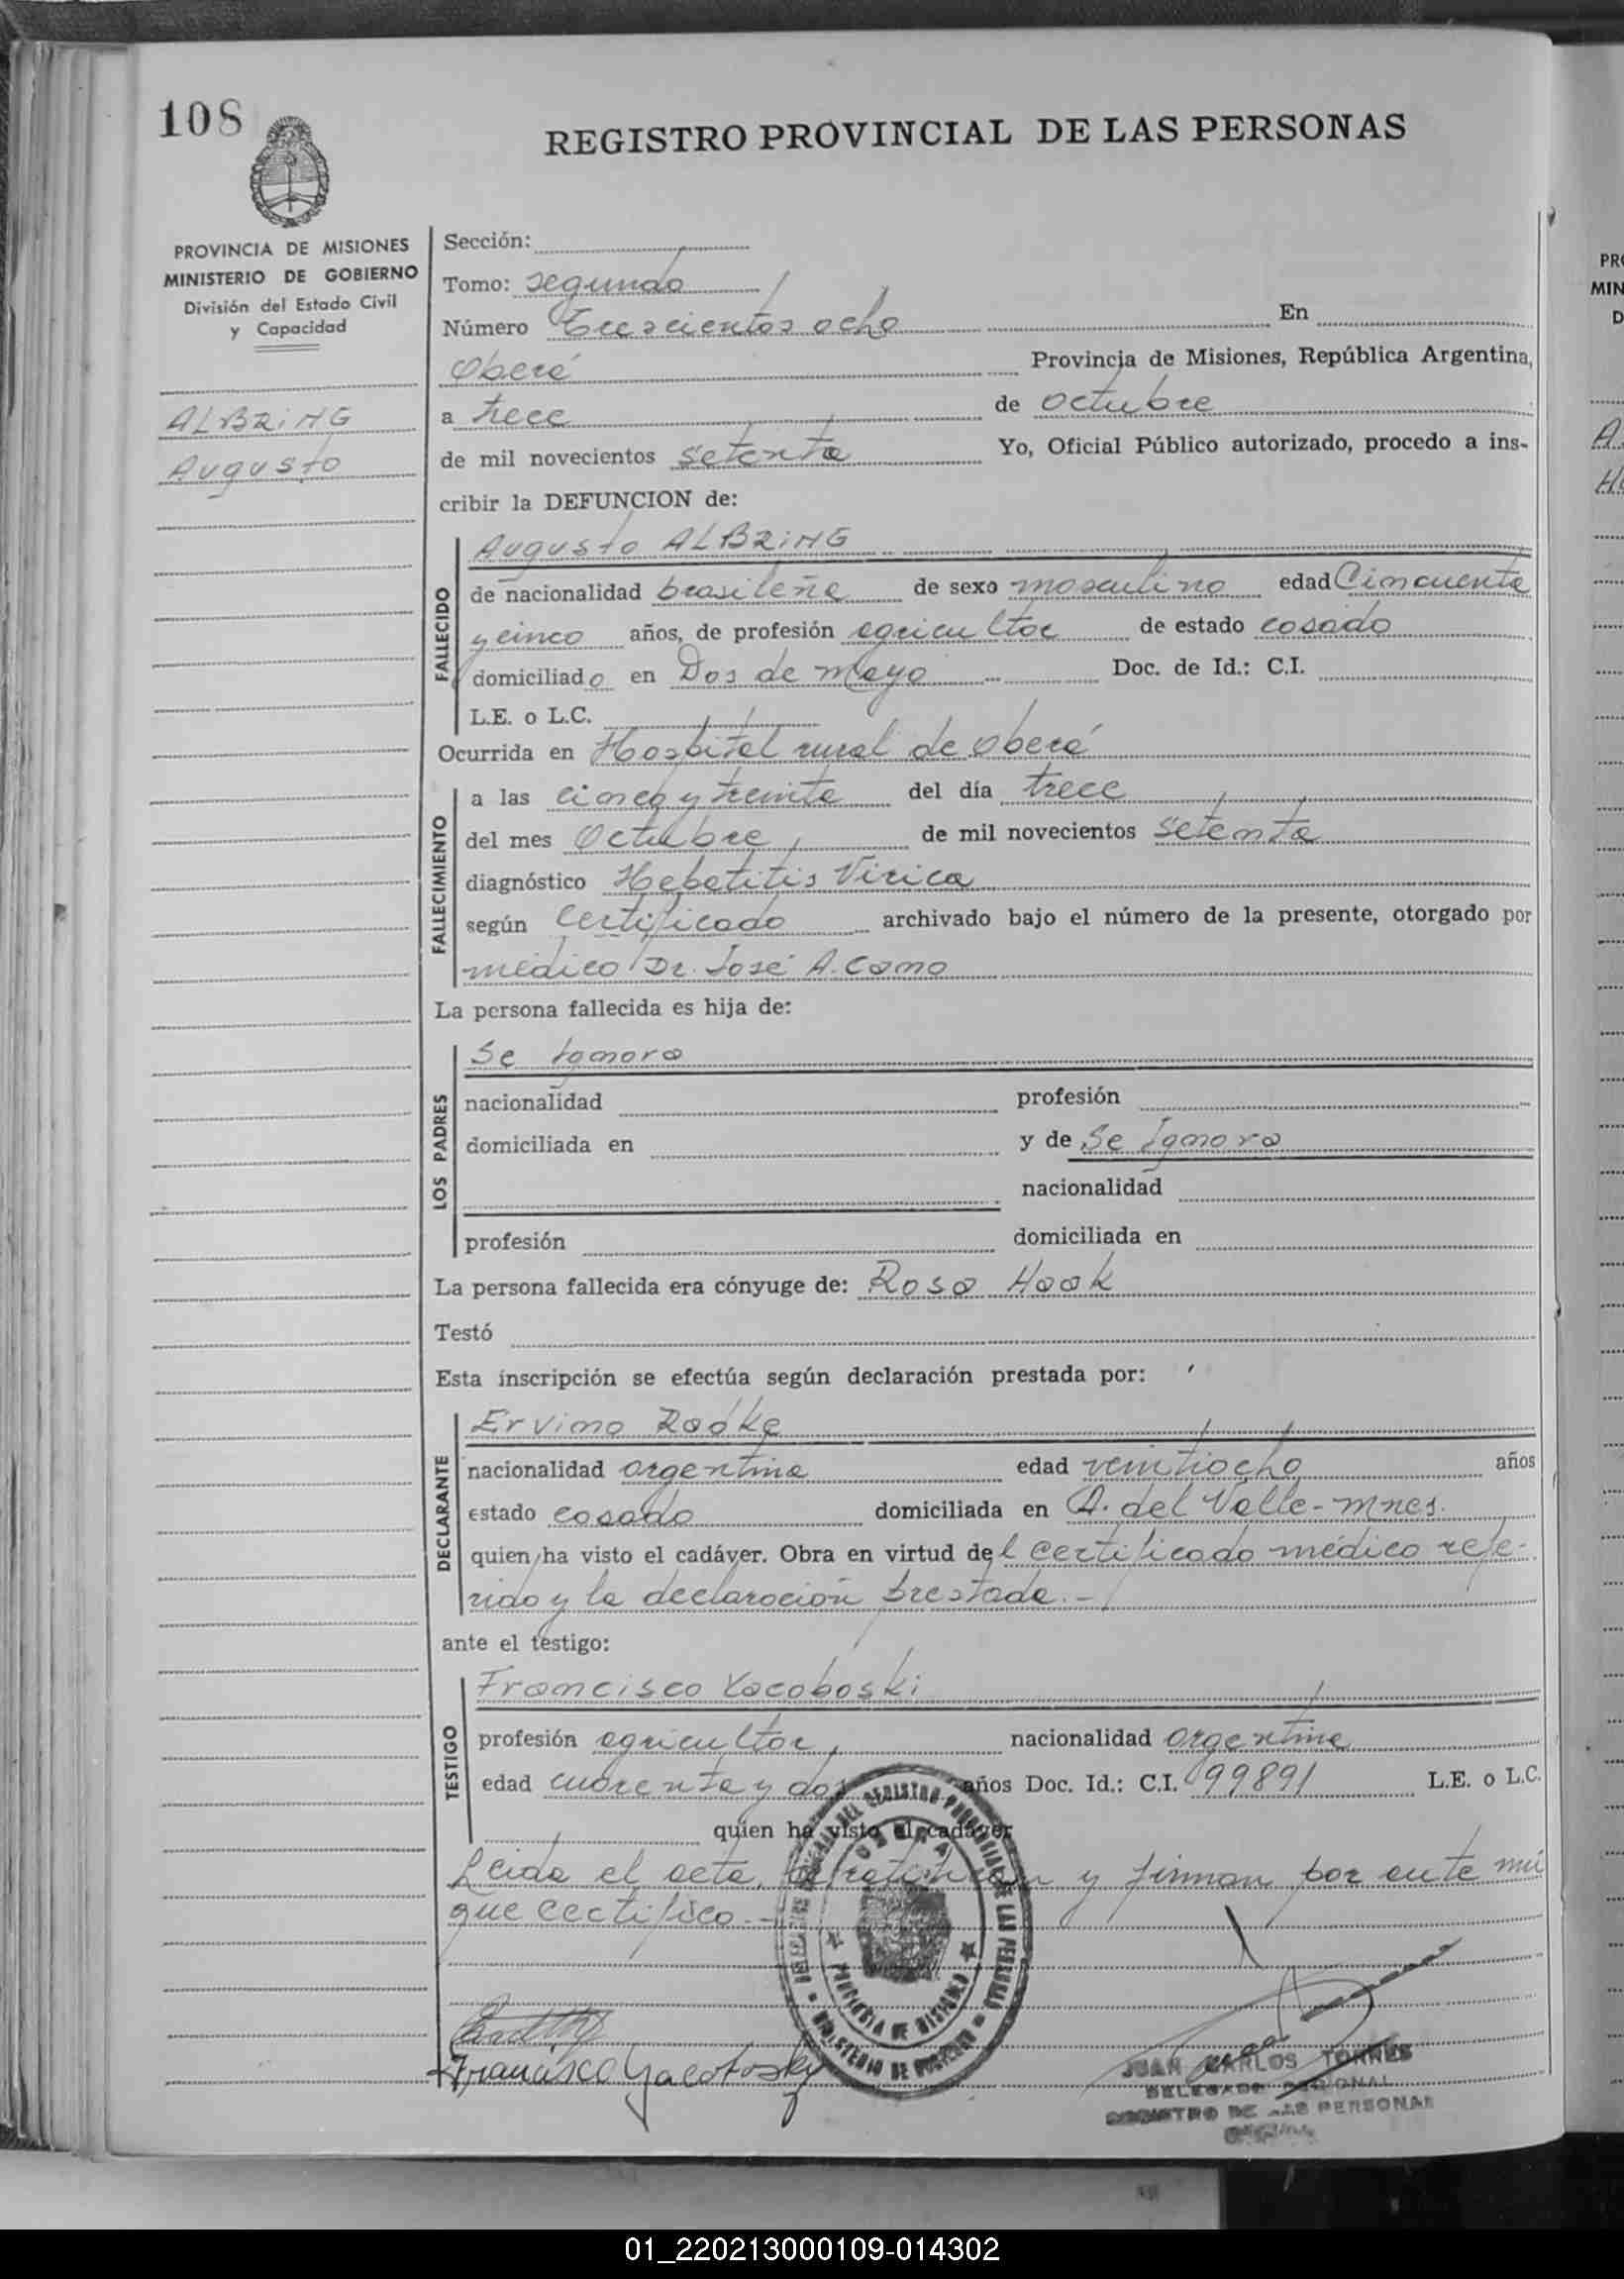 108
REGISTRO PROVINCIAL DE LAS PERSONAS
PROVINCIA DE MISIONES
MINISTERIO DE GOBIERNO
División del Estado Civil
y Capacidad
ALBRiNG
Augusto
Sección:
Tomo: segundo
Número Trescientos ocho En
Oberá Provincia de Misiones, República Argentina,
a trece de octubre
de mil novecientos setenta Yo, Oficial Público autorizado, procedo a ins-
cribir la DEFUNCION de:
FALLECIDO
Augusto ALBRiNG
de nacionalidad brasileña de sexo masculino edad Cincuenta
y cinco años, de profesión agricultor de estado casado
domiciliado en Dos de Mayo Doc. de Id.: C.I.
L.E. o L.C.
Ocurrida en Hospital rural de Oberá
FALLECIMIENTO
a las cinco y treinta del día trece
del mes Octubre de mil novecientos setenta
diagnóstico Hepatitis Virica
según Certificado archivado bajo el número de la presente, otorgado por
médico Dr. José A. Como
La persona fallecida es hija de:
LOS PADRES
Se Ignora
nacionalidad profesión
domiciliada en y de Se Ignora
nacionalidad
profesión domiciliada en
La persona fallecida era cónyuge de: Rosa Hook
Testó
Esta inscripción se efectúa según declaración prestada por:
DECLARANTE
Ervino Radke
nacionalidad argentina edad veintiocho años
estado casado domiciliada en A. del Valle - Mnes.
quien ha visto el cadáver. Obra en virtud del certificado médico refe-
rido y la declaración prestada.-
ante el testigo:
TESTIGO
Francisco Yacoboski
profesión agricultor nacionalidad argentina
edad cuarenta y dos años Doc. Id.: C.I. 99891 L.E. o L.C.
quien ha visto el cadáver
Leida el acta, la ratifican y firman por ante mí
que certifico.-
PROVINCIA DE MISIONES
MINISTERIO DE GOBIERNO
Francisco Yacoboski
JUAN CARLOS TORRES
DELEGADO REGIONAL
REGISTRO DE LAS PERSONAS
PR
MIN
D
A
01_220213000109-014302